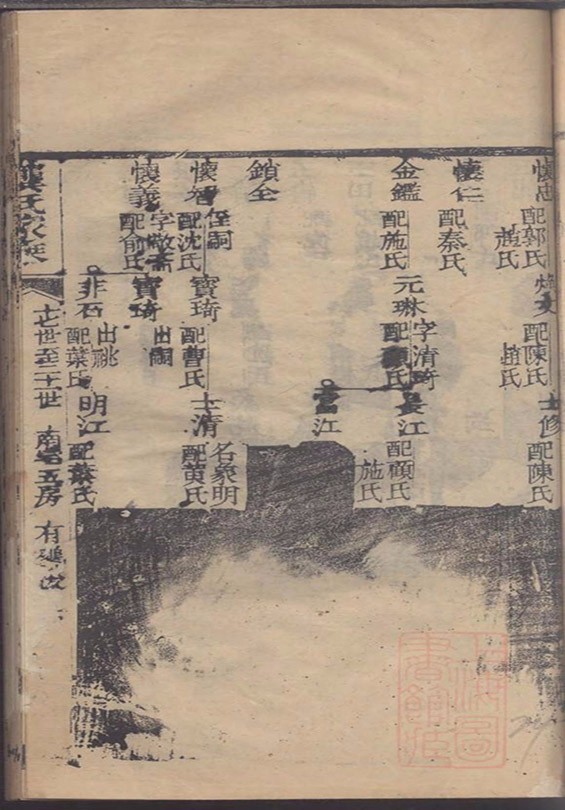 懷忠
配郭氏
趙氏
煥文
配陳氏
趙氏
士修
配陳氏
懷仁
配秦氏
金鑑
配施氏
元琳
字清琦
配顧氏
江
配顧氏
施氏
江
鎖全
懷智
侄嗣
配沈氏
寶琦
配曹氏
士清
名象明
配黄氏
懷義
字敬斋
配俞氏
寶琦
出嗣
非石
出祧
配葉氏
明江
配葉氏
龔氏家乘
十七世至二十一世
南宅五房
上海圖書館藏